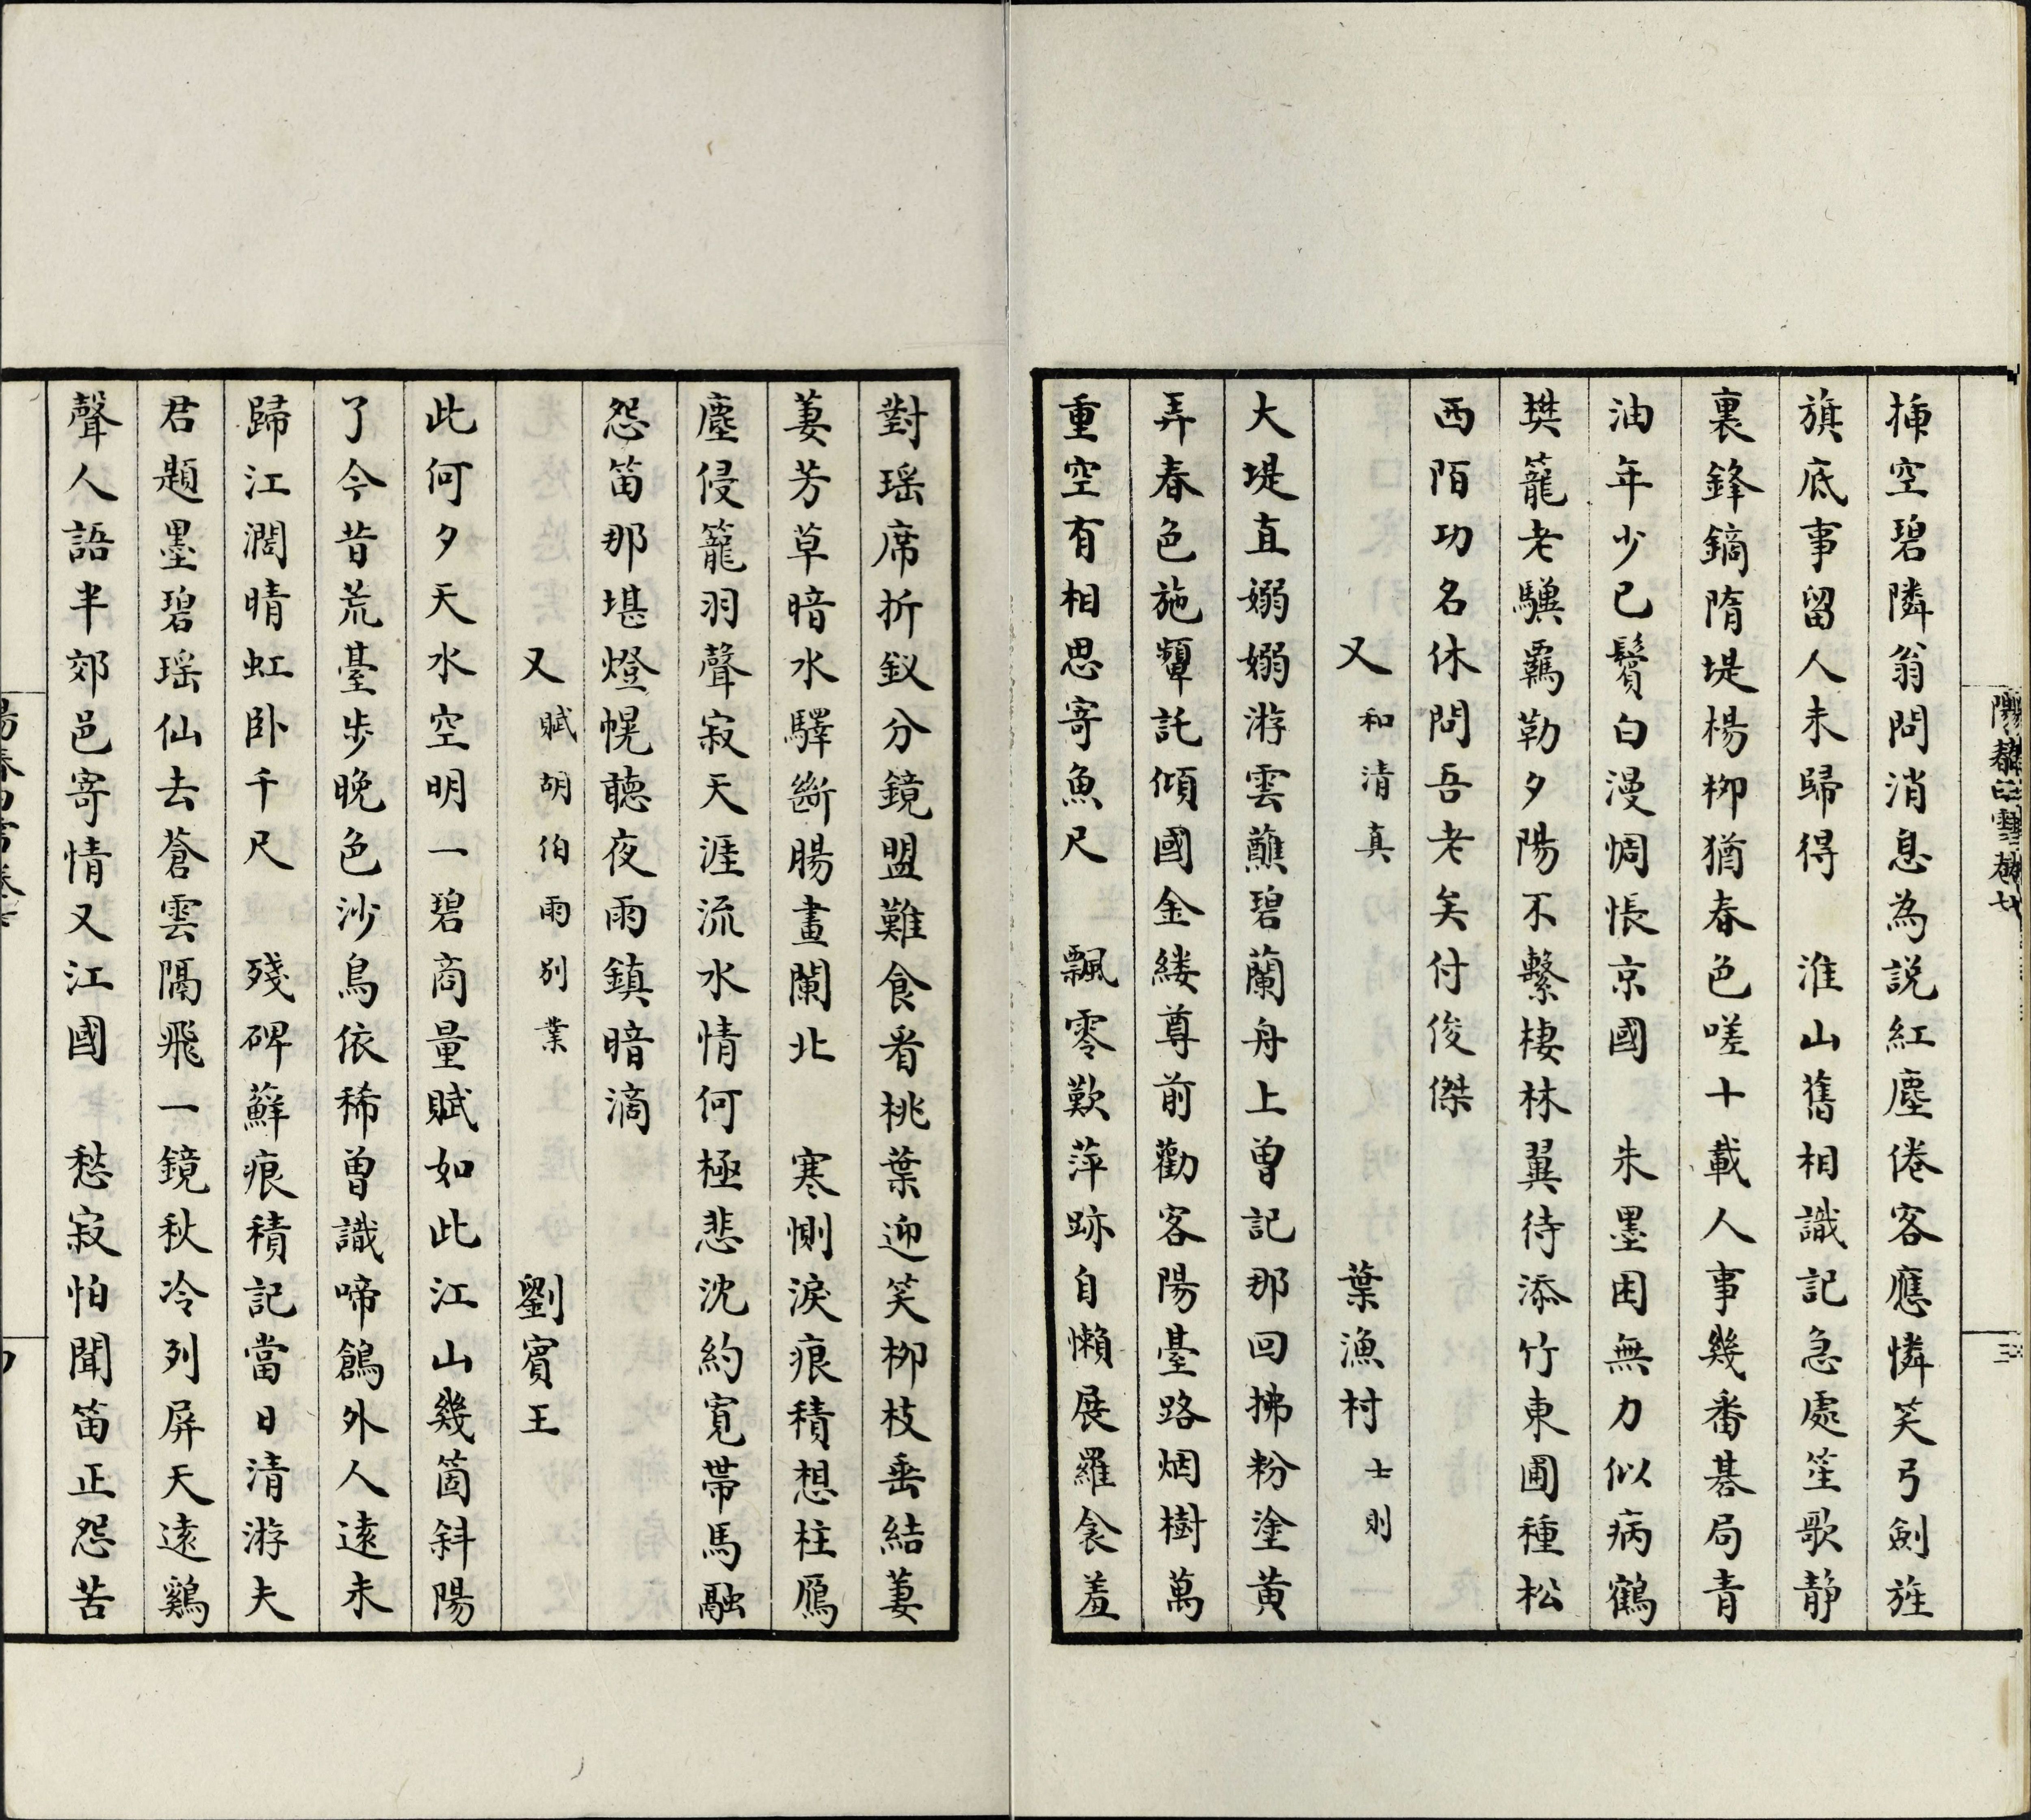 插空碧隣翁問消息為説紅塵倦客應憐笑弓劍旌
旗底事留人未歸得　淮山舊相識記急處笙歌静
裏鋒鏑隋堤楊栁猶春色嗟十載人事幾番碁局青
油年少已鬢白漫惆悵京國　朱墨困無力似病鶴
樊籠老驥羈勒夕陽不繫棲林翼待添竹東圃種松
西陌功名休問吾老矣付俊傑
又和清真　葉漁村士則
大堤直嫋嫋游雲蘸碧蘭舟上曾記那回拂粉塗黄
弄春色施顰託傾國金縷尊前勸客陽臺路烟樹萬
重空有相思寄魚尺　飄零歎萍跡自懶展羅衾羞
對瑶席折釵分鏡盟難食看桃葉迎笑栁枝垂結萋
萋芳草暗水驛斷腸畫闌北　寒惻淚痕積想柱鴈
塵侵籠羽聲寂天涯流水情何極悲沈約寛帶馬融
怨笛那堪燈幌聽夜雨鎮暗滴
又賦胡伯雨别業　劉賓王
此何夕天水空明一碧商量賦如此江山幾箇斜陽
了今昔荒臺步晚色沙鳥依稀曾識啼鶬外人遠未
歸江濶晴虹卧千尺　殘碑蘚痕積記當日清游夫
君題墨碧瑶仙去蒼雲隔飛一鏡秋冷列屏天遠鷄
聲人語半郊邑寄情又江國　愁寂怕聞笛正怨苦